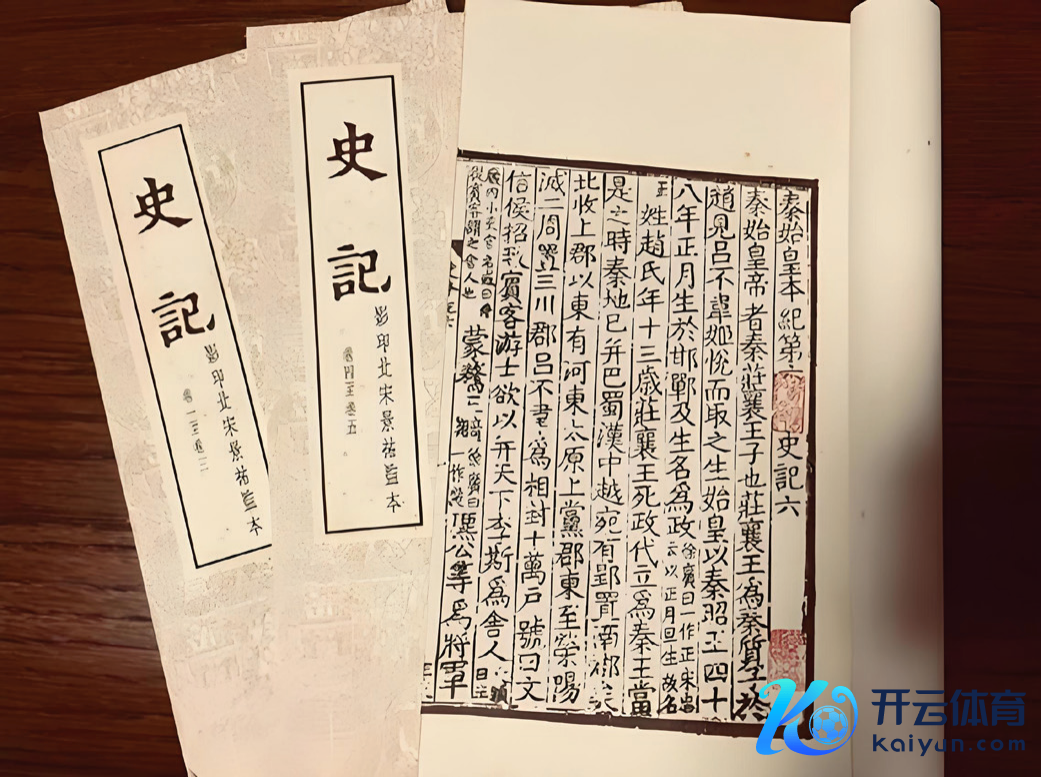 史記
影印北宋景祐監本
卷一至卷三
史記
影印北宋景祐監本
卷四至卷五
秦始皇本紀第六
史記六
秦始皇帝者秦莊襄王子也莊襄王爲秦質子於
趙見呂不韋姬悅而取之生始皇以秦昭王四十
八年正月生於邯鄲及生名爲政徐廣曰一作正宋忠云以正月旦生故名
正姓趙氏年十三歲莊襄王死政代立爲秦王當
是之時秦地已并巴蜀漢中越宛有郢置南郡矣
北收上郡以東有河東太原上黨郡東至滎陽
滅二周置三川郡呂不韋爲相封十萬戶號曰文
信侯招致賓客游士欲以并天下李斯爲舍人
從賓客謂之舍人也
蒙驁王齮徐廣曰一作齕麃公等爲將軍
开云体育
kaiyun.com